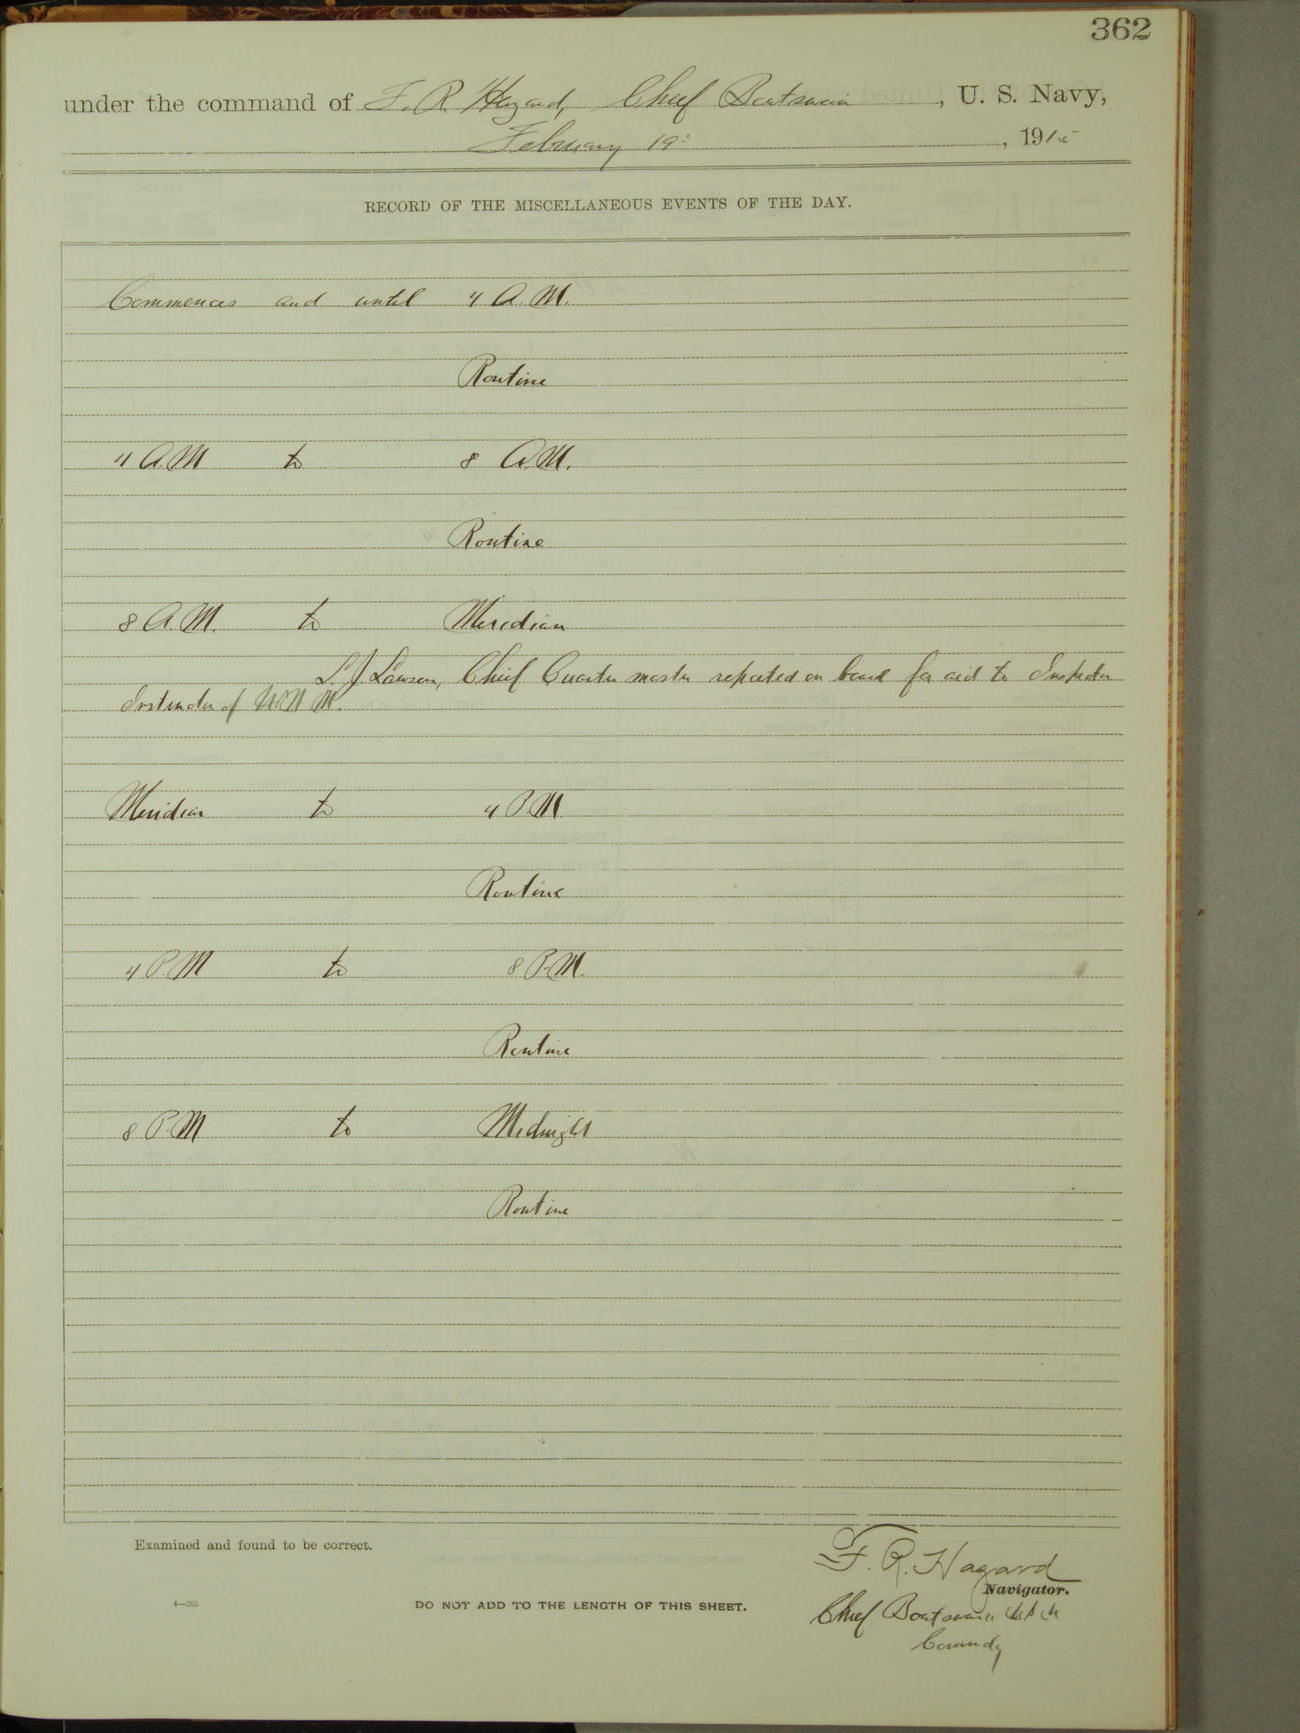 362
under the command of F. R. Hazard, Chief Boatswain, U. S. Navy,
February 19, 1915
RECORD OF THE MISCELLANEOUS EVENTS OF THE DAY.
Commences and until 4 A.M.
Routine
4 A.M to 8 A.M.
Routine
8 A.M. to Meridian
L. J Lawson, Chief Quarter master reported on board for aid to Inspector
Instructor of
Meridian to 4 P.M
Routine
4 P.M to 8 P.M.
Routine
8 P.M to Midnight
Routine
Examined and found to be correct.
F. R. Hazard
Navigator.
4—263
DO NOT ADD TO THE LENGTH OF THIS SHEET.
Chief Boatswain U.S.N
Comndg